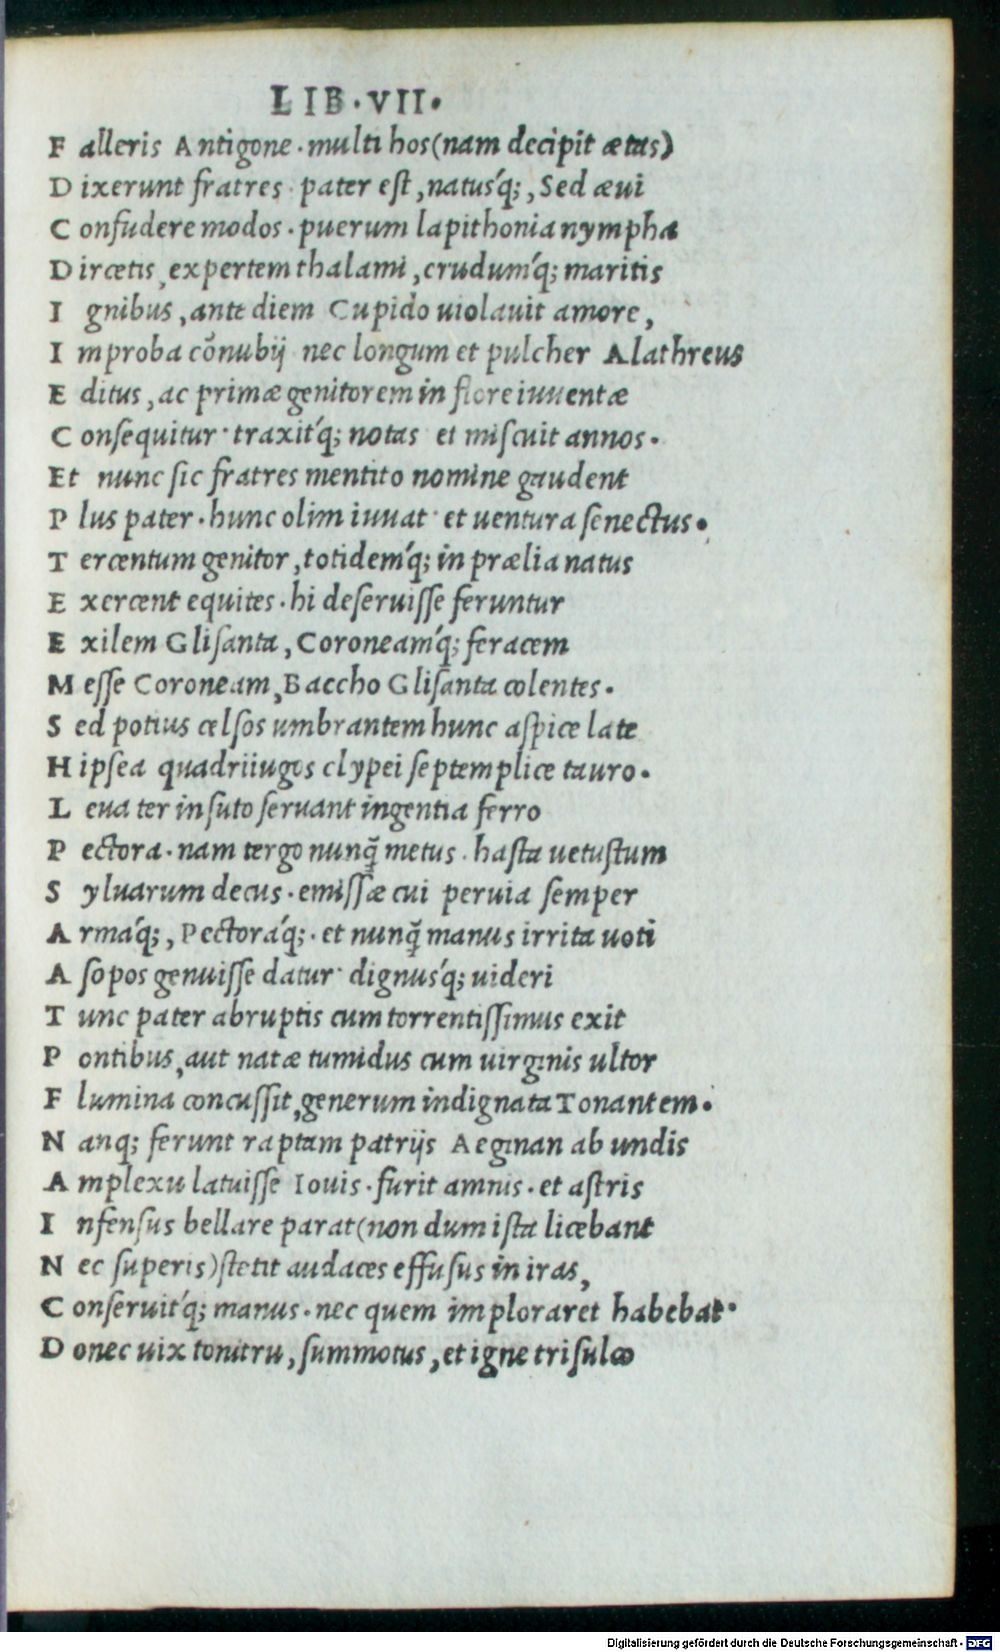 LIB.VII.
F alleris Antigone.multi hos(nam decipit ætas)
D ixerunt fratres. pater est,natus'q;, Sed æui
C onfudere modos.puerum lapithonia nympha
D ircetis,expertem thalami,crudum'q; maritis
I gnibus,ante diem Cupido uiolauit amore,
I mproba cōnubij. nec longum et pulcher Alathreus
E ditus,ac primæ genitorem in flore iuuentæ
C onsequitur.traxit'q; notas et miscuit annos.
Et nunc sic fratres mentito nomine gaudent
P lus pater.hunc olim iuuat.et uentura senectus.
T ercentum genitor,totidem'q; in prælia natus
E xercent equites.hi deseruisse feruntur
E xilem Glisanta,Coroneam'q; feracem
M esse Coroneam,Baccho Glisanta colentes.
S ed potius celsos umbrantem hunc aspice late
H ipsea quadriiugos clypei septemplice tauro.
L eua ter insuto seruant ingentia ferro
P ectora.nam tergo nunq̃ metus. hasta uetustum
S yluarum decus.emissæ cui peruia semper
A rma'q;, Pectora'q;.et nunq̃ manus irrita uoti
A sopos genuisse datur. dignus'q; uideri
T unc pater abruptis cum torrentissimus exit
P ontibus,aut natæ tumidus cum uirginis ultor
F lumina concussit,generum indignata Tonantem.
N anq; ferunt raptam patrijs Aeginan ab undis
A mplexu latuisse Iouis.furit amnis.et astris
I nfensus bellare parat(non dum ista licebant
N ec superis)stetit audaces effusus in iras,
C onseruit'q; manus.nec quem imploraret habebat.
D onec uix tonitru,summotus,et igne trisulco
Digitalisierung gefördert durch die Deutsche Forschungsgemeinschaft - DFG